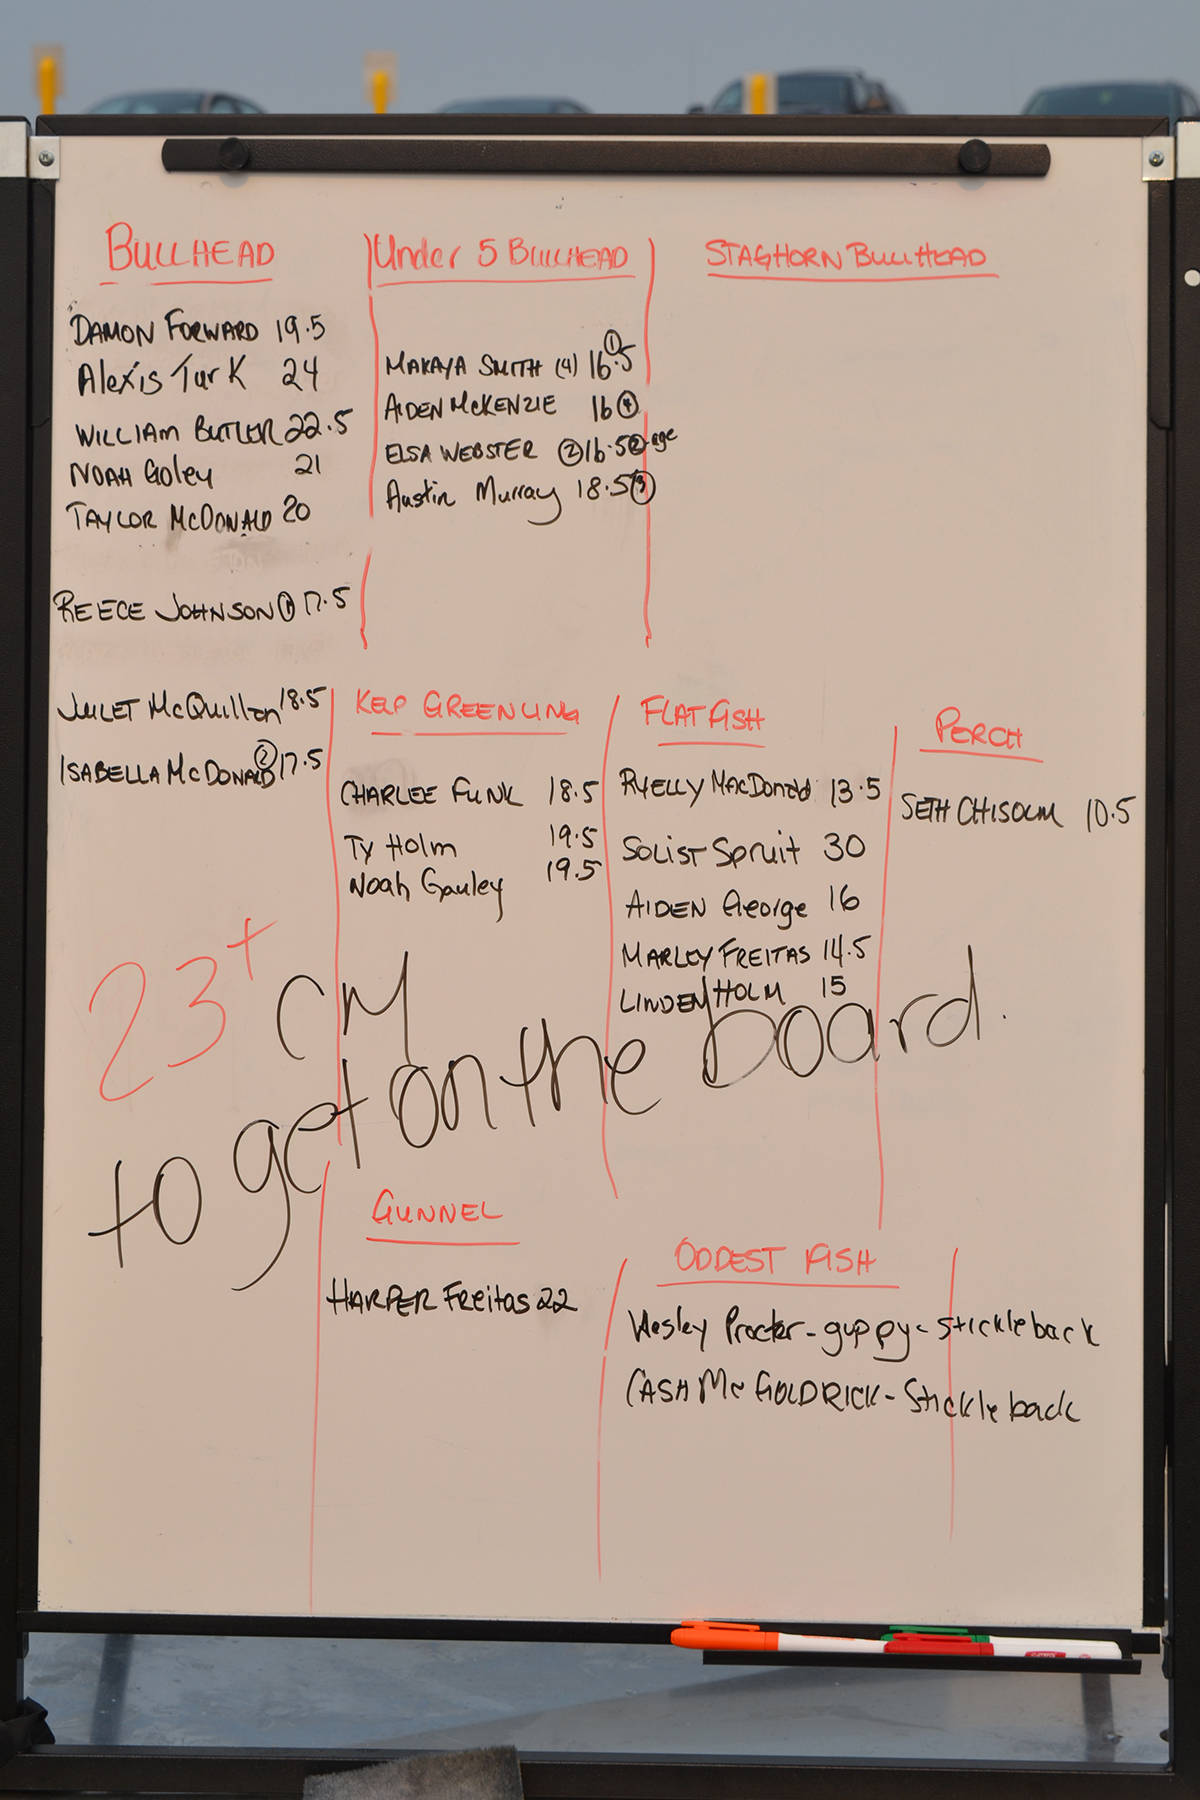 BULLHEAD
DAMON FORWARD 19.5
Alexis Turk 24
WILLIAM BUTLER 22.5
NOAH Goley 21
TAYLOR McDONALD 20
REECE JOHNSON ① 17.5
JULIET McQuillan 18.5
ISABELLA McDONALD ② 17.5
Under 5 BULLHEAD
MAKAYA SMITH (4) 16.5 ①
AIDEN McKENZIE 16 ④
ELSA WEBSTER ② 16.5 ② age
Austin Murray 18.5 ③
STAGHORN BULLHEAD
KELP GREENLING
CHARLEE FUNK 18.5
Ty Holm 19.5
Noah Gauley 19.5
FLATFISH
RYELLY MacDonald 13.5
SOLIST Spruit 30
AIDEN George 16
MARLEY FREITAS 14.5
LINDEN HOLM 15
PERCH
SETH CHISOLM 10.5
23+ CM
to get on the board.
GUNNEL
HARPER Freitas 22
ODDEST FISH
Wesley Procter - guppy - stickleback
CASH Mc GOLDRICK - Stickleback